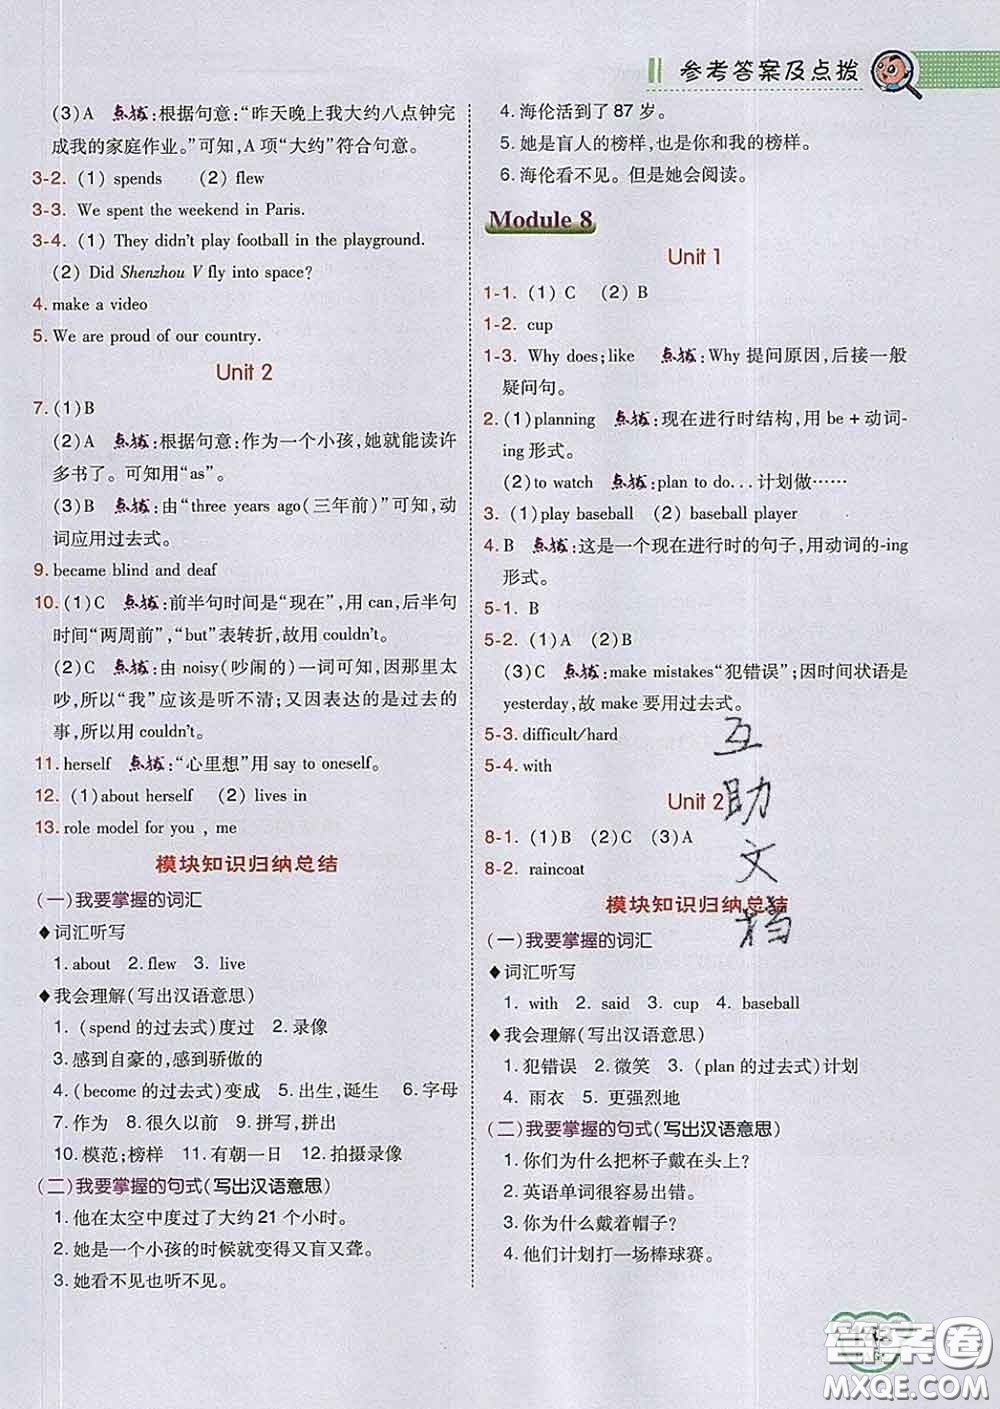 参考答案及点拨
(3)A 点拨:根据句意:“昨天晚上我大约八点钟完
成我的家庭作业。”可知,A项“大约”符合句意。
3-2. (1) spends (2) flew
3-3. We spent the weekend in Paris.
3-4. (1) They didn't play football in the playground.
(2) Did Shenzhou V fly into space?
4. make a video
5. We are proud of our country.
Unit 2
7. (1)B
(2)A 点拨:根据句意:作为一个小孩,她就能读许
多书了。可知用“as”。
(3)B 点拨:由“three years ago(三年前)”可知,动
词应用过去式。
9. became blind and deaf
10. (1)C 点拨:前半句时间是“现在”,用 can,后半句
时间“两周前”,“but”表转折,故用 couldn't。
(2)C 点拨:由 noisy(吵闹的)一词可知,因那里太
吵,所以“我”应该是听不清;又因表达的是过去的
事,所以用 couldn't。
11. herself 点拨:“心里想”用 say to oneself。
12. (1)about herself (2) lives in
13. role model for you , me
模块知识归纳总结
(一)我要掌握的词汇
◆词汇听写
1. about 2. flew 3. live
◆我会理解(写出汉语意思)
1. (spend 的过去式)度过 2. 录像
3. 感到自豪的,感到骄傲的
4. (become 的过去式)变成 5. 出生,诞生 6. 字母
7. 作为 8. 很久以前 9. 拼写,拼出
10. 模范;榜样 11. 有朝一日 12. 拍摄录像
(二)我要掌握的句式(写出汉语意思)
1. 他在太空中度过了大约 21 个小时。
2. 她是一个小孩的时候就变得又盲又聋。
3. 她看不见也听不见。
4. 海伦活到了 87 岁。
5. 她是盲人的榜样,也是你和我的榜样。
6. 海伦看不见。但是她会阅读。
Module 8
Unit 1
1-1. (1) C (2) B
1-2. cup
1-3. Why does;like 点拨:Why 提问原因,后接一般
疑问句。
2. (1)planning 点拨:现在进行时结构,用 be + 动词-
ing 形式。
(2)to watch 点拨:plan to do...计划做……
3. (1)play baseball (2) baseball player
4. B 点拨:这是一个现在进行时的句子,用动词的-ing
形式。
5-1. B
5-2. (1)A (2)B
(3)C 点拨:make mistakes“犯错误”;因时间状语是
yesterday,故 make 要用过去式。
5-3. difficult/hard
5-4. with
Unit 2
8-1. (1)B (2)C (3)A
8-2. raincoat
模块知识归纳总结
(一)我要掌握的词汇
◆词汇听写
1. with 2. said 3. cup 4. baseball
◆我会理解(写出汉语意思)
1. 犯错误 2. 微笑 3. (plan 的过去式)计划
4. 雨衣 5. 更强烈地
(二)我要掌握的句式(写出汉语意思)
1. 你们为什么把杯子戴在头上?
2. 英语单词很容易出错。
3. 你为什么戴着帽子?
4. 他们计划打一场棒球赛。
互助文档
答案圈
MXQE.COM